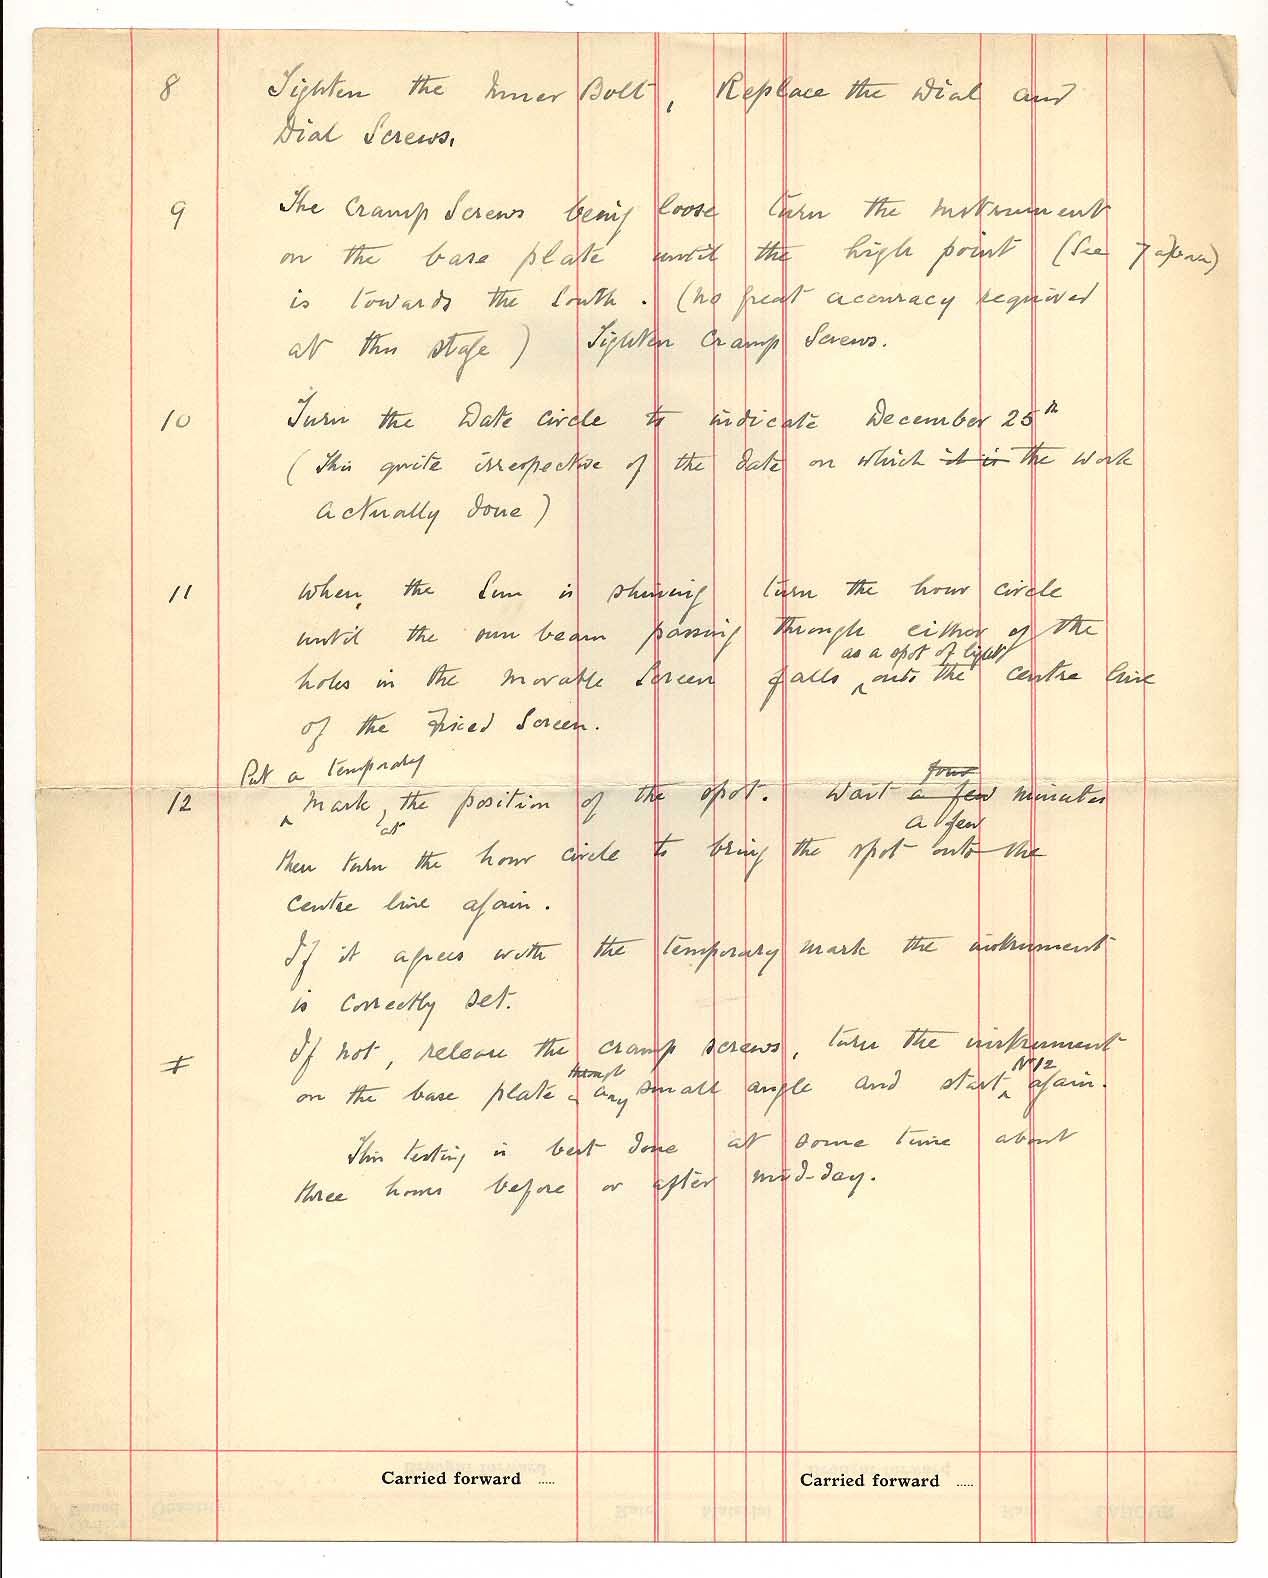 8 Tighten the Inner Bolt, Replace the Dial and
Dial Screws.
9 The Cramp Screws being loose turn the instrument
on the base plate until the high point (See 7 above)
is towards the South. (No great accuracy required
at this stage) Tighten Cramp Screws.
10 Turn the Date circle to indicate December 25th
(This quite irrespective of the date on which it is the work
actually done)
11 When the Sun is shining turn the hour circle
until the sun beam passing through either of the
as a spot of light
holes in the movable Screen falls onto the centre line
of the Fixed Screen.
Put a temporary
four
12 Mark, the position of the spot. Wait a few minutes
at
a few
then turn the hour circle to bring the spot onto the
centre line again.
If it agrees with the temporary mark the instrument
is correctly set.
If not, release the cramp screws, turn the instrument
through
No 12
on the base plate any small angle and start again.
This testing is best done at some time about
three hours before or after mid-day.
Carried forward ..... Carried forward .....